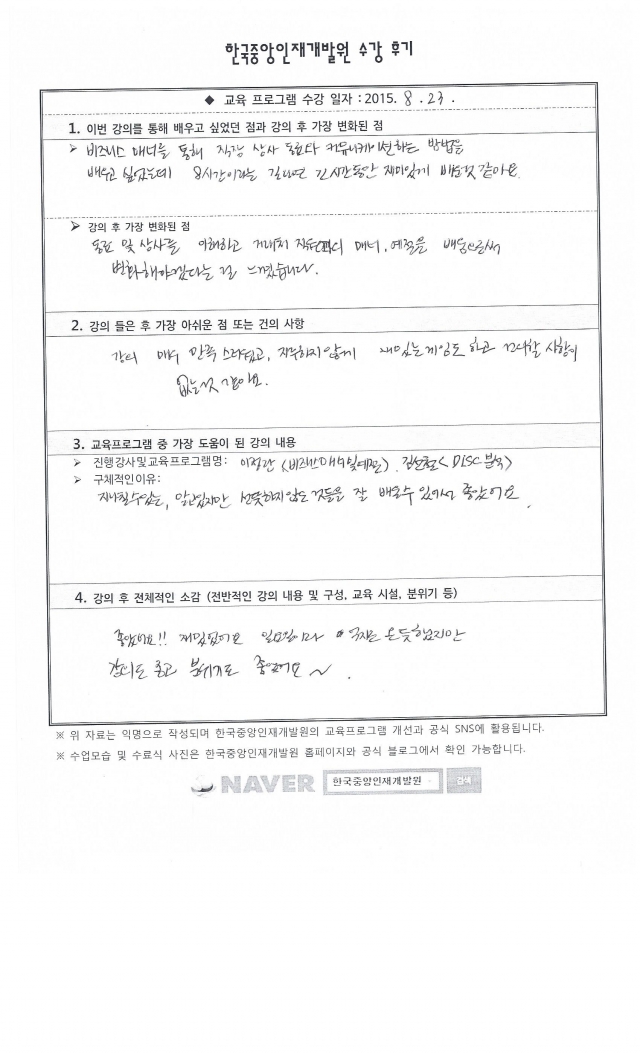 한국중앙인재개발원 수강 후기
◆ 교육 프로그램 수강 일자 : 2015. 8 . 23 .
1. 이번 강의를 통해 배우고 싶었던 점과 강의 후 가장 변화된 점
➢ 비즈니스 매너를 통해 직장 상사 동료와 커뮤니케이션하는 방법을
배우고 싶었는데 8시간이라는 길다면 긴시간동안 재미있게 배운것 같아요.
➢ 강의 후 가장 변화된 점
동료 및 상사를 이해하고 매너, 예절을 배움으로써
변화해야겠다는 걸 느꼈습니다.
2. 강의 들은 후 가장 아쉬운 점 또는 건의 사항
강의 매우 만족 스러웠고, 지루하지않게 재밌는게임도 하고 건의할 사항이
없는것 같아요.
3. 교육프로그램 중 가장 도움이 된 강의 내용
➢ 진행강사및교육프로그램명: <비즈니스매너및예절>. <DISC 분석>
➢ 구체적인이유:
지나칠수있는, 알고있지만 것들을 잘 배울수 있어서 좋았어요.
4. 강의 후 전체적인 소감 (전반적인 강의 내용 및 구성, 교육 시설, 분위기 등)
좋았어요!! 재밌었어요 일요일이라 듯했지만
강의도 좋고 분위기도 좋았어요 ~ .
※ 위 자료는 익명으로 작성되며 한국중앙인재개발원의 교육프로그램 개선과 공식 SNS에 활용됩니다.
※ 수업모습 및 수료식 사진은 한국중앙인재개발원 홈페이지와 공식 블로그에서 확인 가능합니다.
NAVER 한국중앙인재개발원 검색